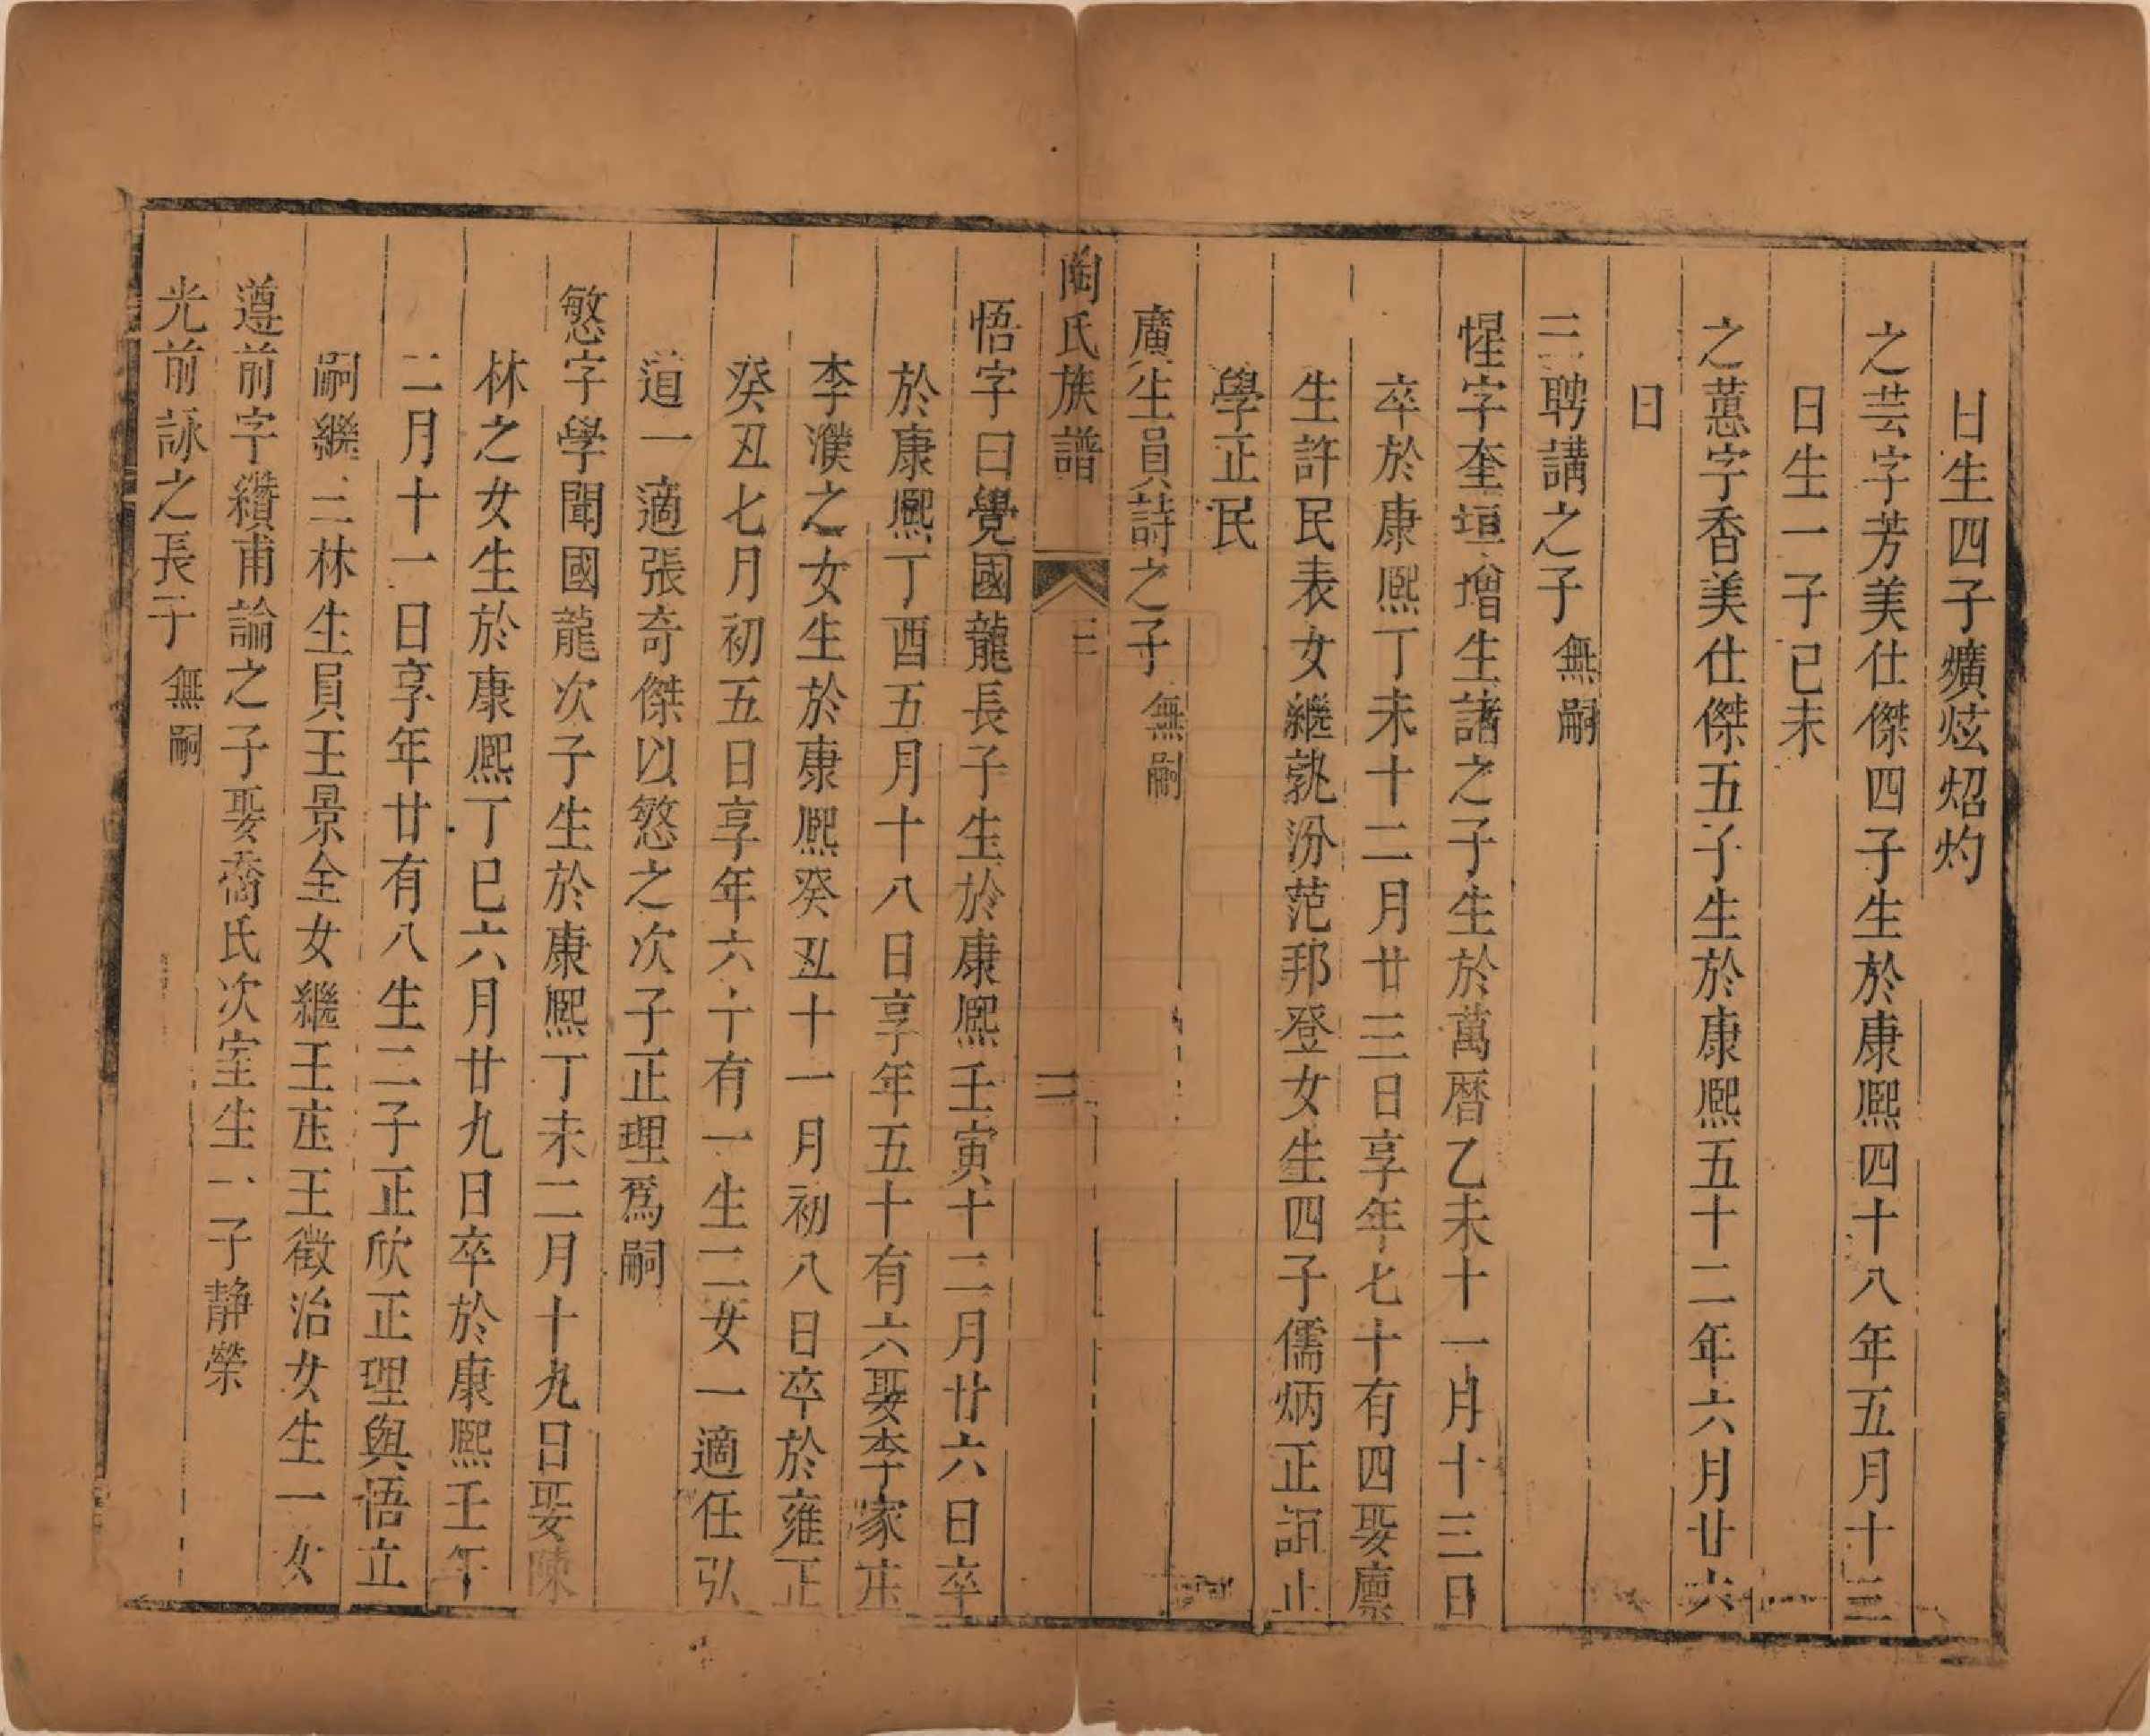 日生四子爌炫炤灼
之芸字芳美仕傑四子生於康熙四十八年五月十三
日生一子已未
之蕙字香美仕傑五子生於康熙五十二年六月廿六
日
三聘講之子無嗣
惺字奎垣增生諸之子生於萬曆乙未十一月十三日
卒於康熙丁未十二月廿三日享年七十有四娶廪
生許民表女繼郭汾范邦登女生四子儒炳正詔止
學正民
廣生員詩之子無嗣
陶氏族譜 二 三
悟字曰覺國龍長子生於康熙壬寅十二月廿六日卒
於康熙丁酉五月十八日享年五十有六娶李家庄
李濮之女生於康熙癸丑十一月初八日卒於雍正
癸丑七月初五日享年六十有一生二女一適任弘
道一適張奇傑以慜之次子正理爲嗣
慜字學聞國龍次子生於康熙丁未二月十九日娶陳
林之女生於康熙丁巳六月廿九日卒於康熙壬午
二月十一日享年廿有八生二子正欣正理與悟立
嗣繼二林生員王景全女繼王庄王徵治女生一女
遵前字纘甫論之子娶喬氏次室生一子靜榮
光前詠之長子無嗣